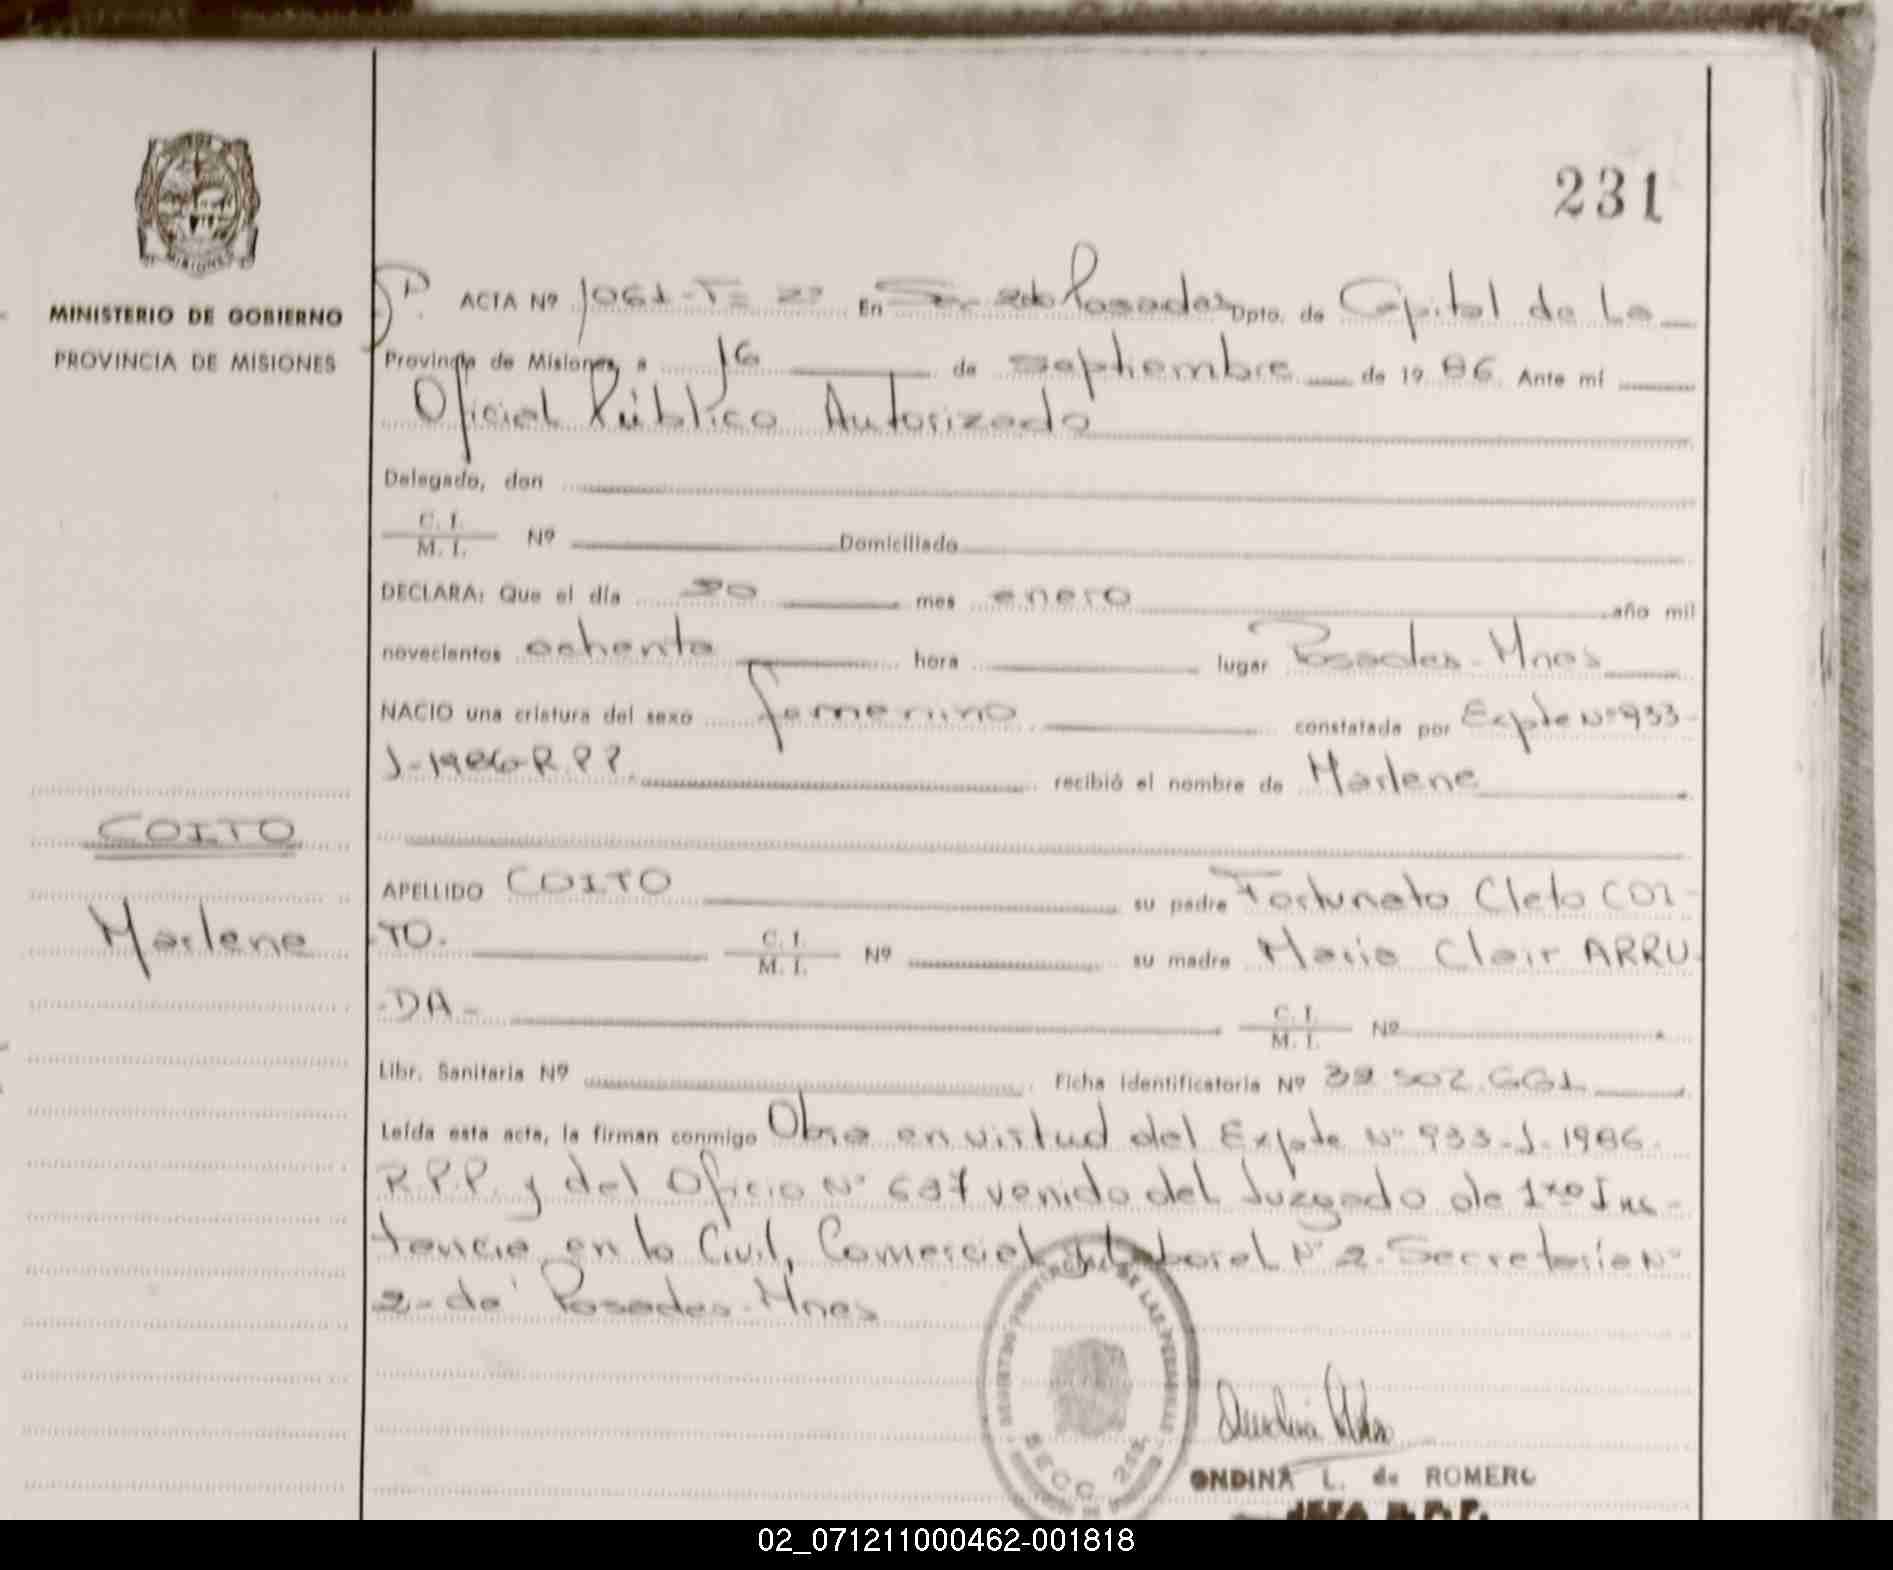 231
MINISTERIO DE GOBIERNO
PROVINCIA DE MISIONES
ACTA Nº 1061-Tº 2º En Posadas Dpto. de Capital de La
Provincia de Misiones, a 16 de septiembre de 1986 Ante mí
Oficial Público Autorizado
Delegado, don
C. I.
M. I. Nº Domiciliado
DECLARA: Que el día 30 mes enero año mil
novecientos ochenta hora lugar Posadas-Mnes
NACIO una criatura del sexo femenino constatada por Expte Nº 933-
J-1986-R.P.P. recibió el nombre de Marlene
COITO
Marlene
APELLIDO COITO su padre Fortunato Cleto COI-
TO. C. I. M. I. Nº su madre Maria Clair ARRU-
-DA- C. I. M. I. Nº
Libr. Sanitaria Nº Ficha Identificatoria Nº
Leída esta acta, la firman conmigo Obra en virtud del Expte Nº 933-J-1986-
R.P.P. y del Oficio Nº venido del Juzgado de 1ra Ins-
tancia en lo Civil, Comercial y Laboral Nº 2-Secretaría Nº
2-de Posadas-Mnes
REGISTRO PROVINCIAL DE LAS PERSONAS
SECC
ONDINA L. de ROMERO
JEFE
02_071211000462-001818